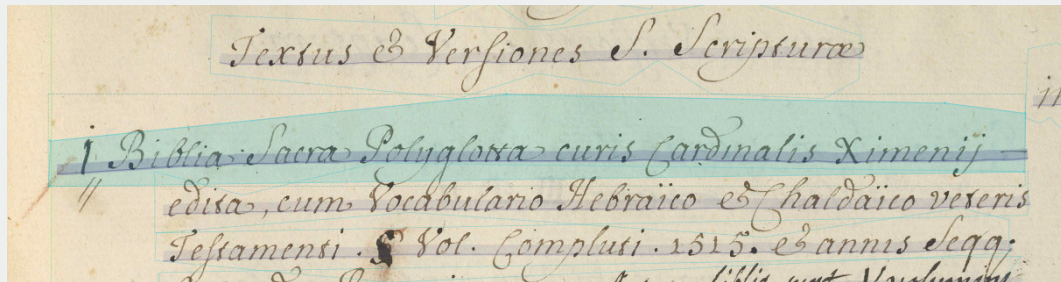 Textus & Versiones S. Scripturæ
1 Biblia Sacra Polyglotta curis Cardinalis Ximenij —
edita, cum Vocabulario Hebraïco & Chaldaïco veteris
Testamenti. Vol. Compluti. 1515. & annis Seqq;